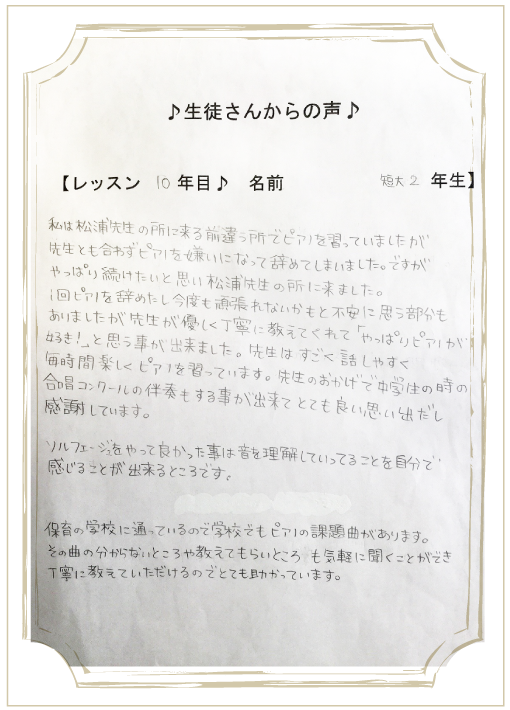 ♪生徒さんからの声♪
【レッスン 10 年目♪ 名前 短大 2 年生】
私は松浦先生の所に来る前違う所でピアノを習っていましたが
先生とも合わずピアノを嫌いになって辞めてしまいました。ですが
やっぱり続けたいと思い松浦先生の所に来ました。
1回ピアノを辞めたし今度も頑張れないかもと不安に思う部分も
ありましたが先生が優しく丁寧に教えてくれて「やっぱりピアノが
好き!」と思う事が出来ました。先生はすごく話しやすく
毎時間楽しくピアノを習っています。先生のおかげで中学生の時の
合唱コンクールの伴奏もする事が出来てとても良い思い出だし
感謝しています。
ソルフェージュをやって良かった事は音を理解していってることを自分で
感じることが出来るところです。
保育の学校に通っているので学校でもピアノの課題曲があります。
その曲の分からないところや教えてもらいところ も気軽に聞くことができ
丁寧に教えていただけるのでとても助かっています。